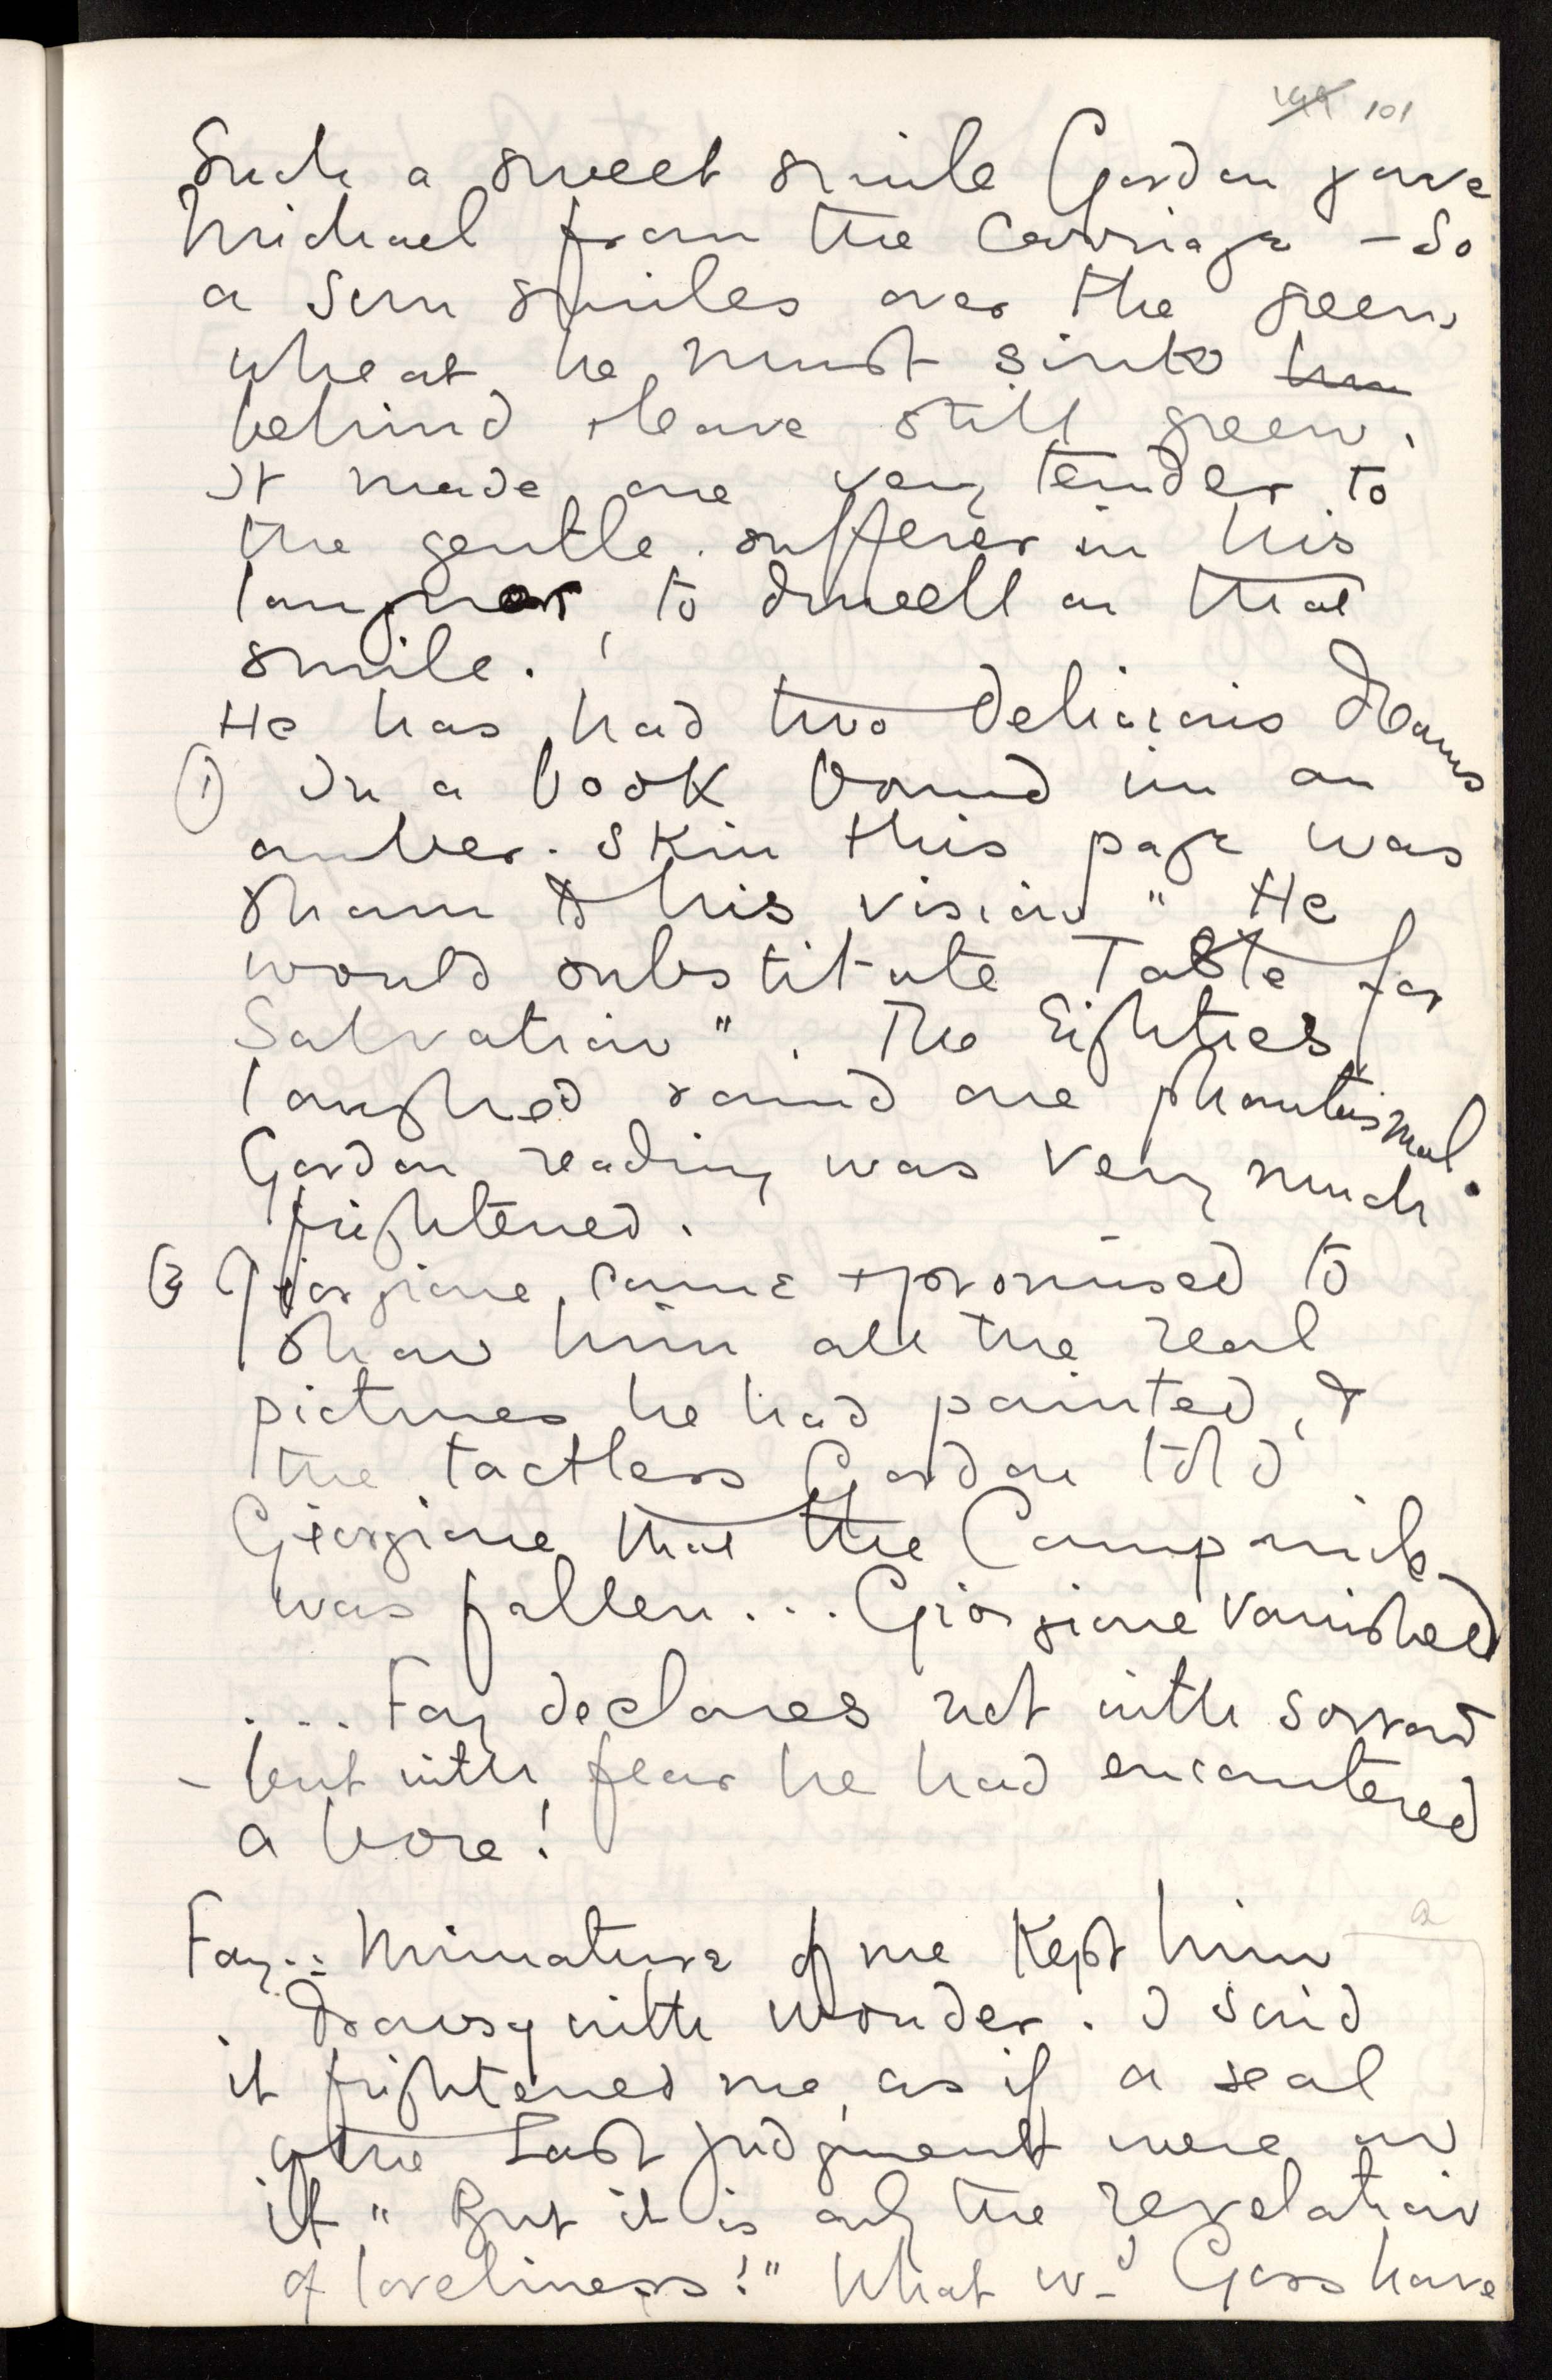 101
Such a sweet smile Gordon gave
Michael from the carriage – So
a sun smiles over the green
wheat he must sink
behind & leave still green.
It made one very tender to
the gentle sufferer in his
languor, to dwell on that
smile.
He has had two delicious dreams
① In a book bound in an
amber skin this page was
shown to his vision " He
would substitute Taste for
Salvation". The Eighties
laughed round one phantasmal.
Gordon reading was very much
frightened.
② Giorgione came & promised to
show him all the real
pictures he had painted, &
the tactless Gordon told
Giorgione that the Campanile
was fallen... Giorgione vanished
... Fay declares not with sorrow
– but with fear he had encountered
a bore!
Fay's Miniature of me kept him
drowsy with wonder. I said
it frightened me, as if a seal
of the Last Judgment were on
it " But it is only the revelation
of loveliness!" What wd Goss have